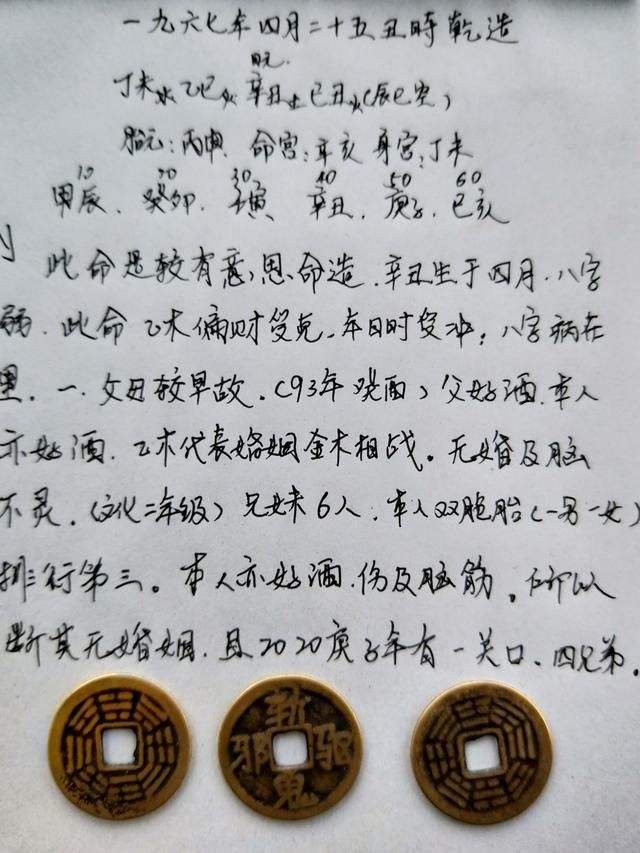 一九六七年四月二十五丑時乾造
日元.
丁未水乙巳火辛丑土己丑火(辰巳空)
胎元:丙申 命宫:辛亥 身宫:丁未
10 20 30 40 50 60
甲辰、癸卯、壬寅、辛丑、庚子、己亥
此命是较有意思命造.辛丑生于四月.八字
弱.此命乙木偏财受克.年日时受冲;八字病在
里.一.父母较早故.(93年癸酉)父好酒.本人
亦好酒.乙木代表婚姻金木相战。无婚及脑
不灵.(文化二年级)兄妹6人.本人双胞胎(一男一女)
排行第三。本人亦好酒.伤及脑筋。所以
断其无婚姻.且2020庚子年有一关口、四兄弟。
斬 邪 驱 鬼